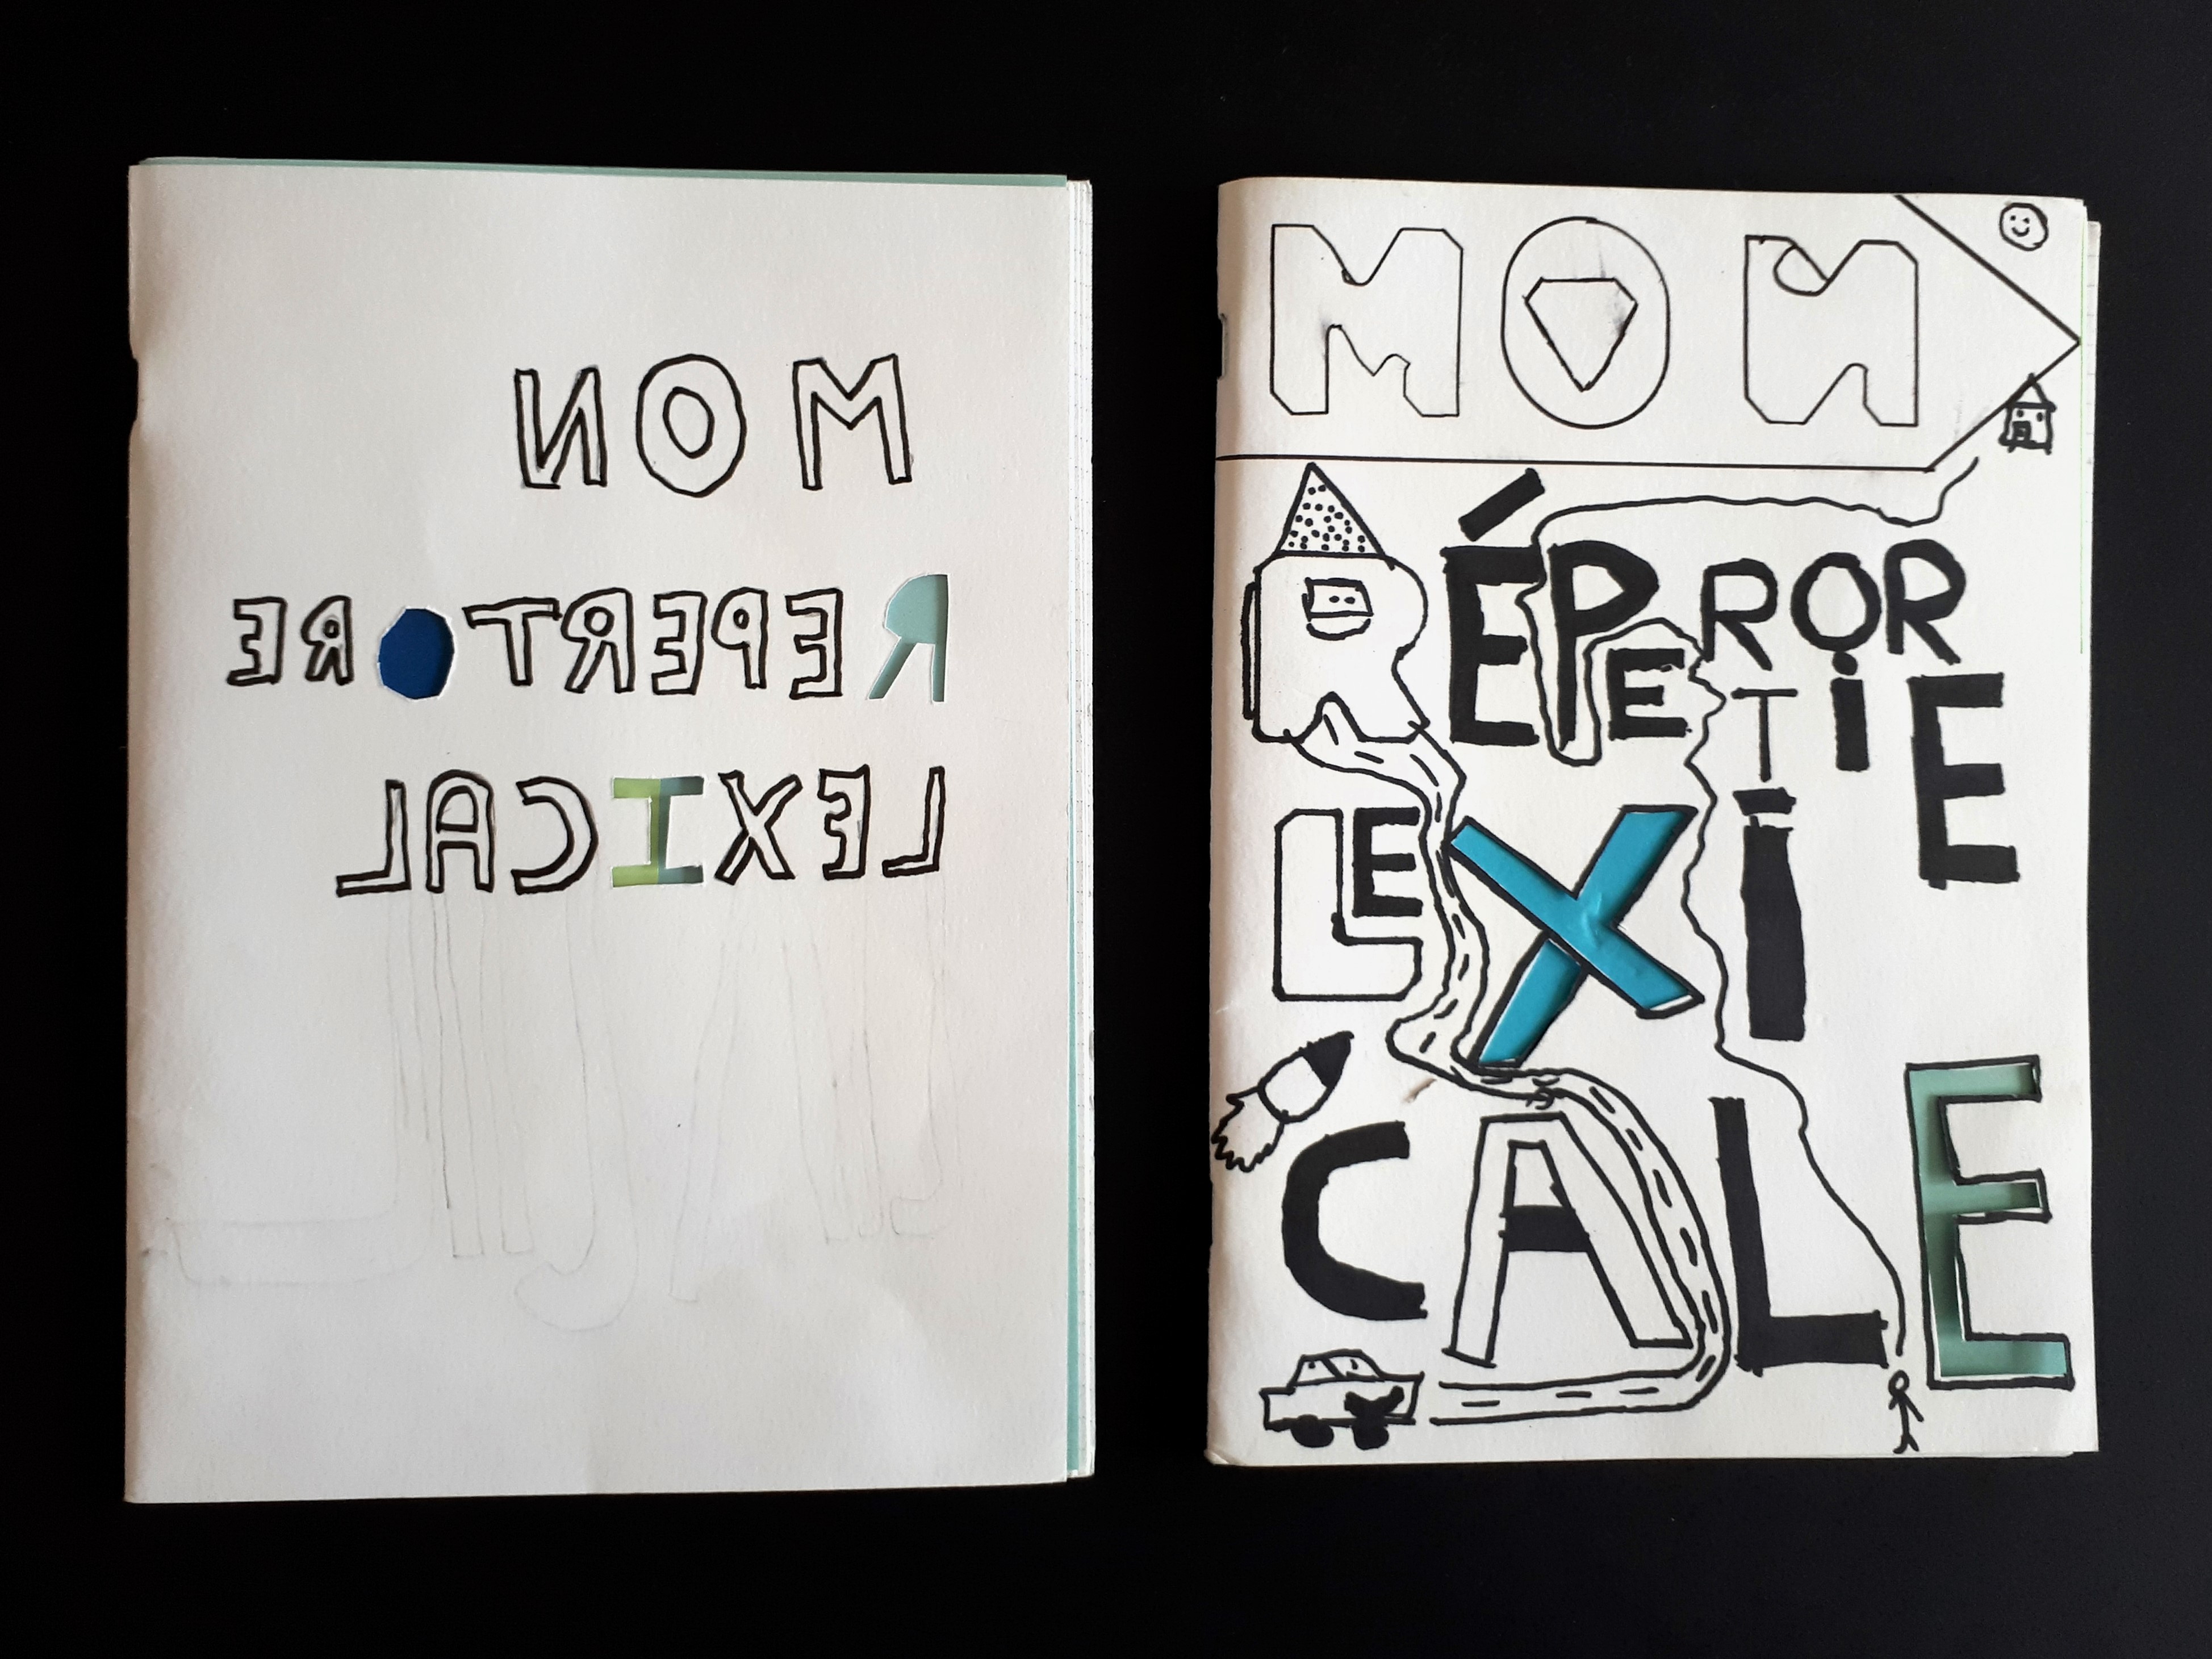 MON
REPERTORE
LEXICAL
MON
RÉPERTOiRE
LEXI
CALE